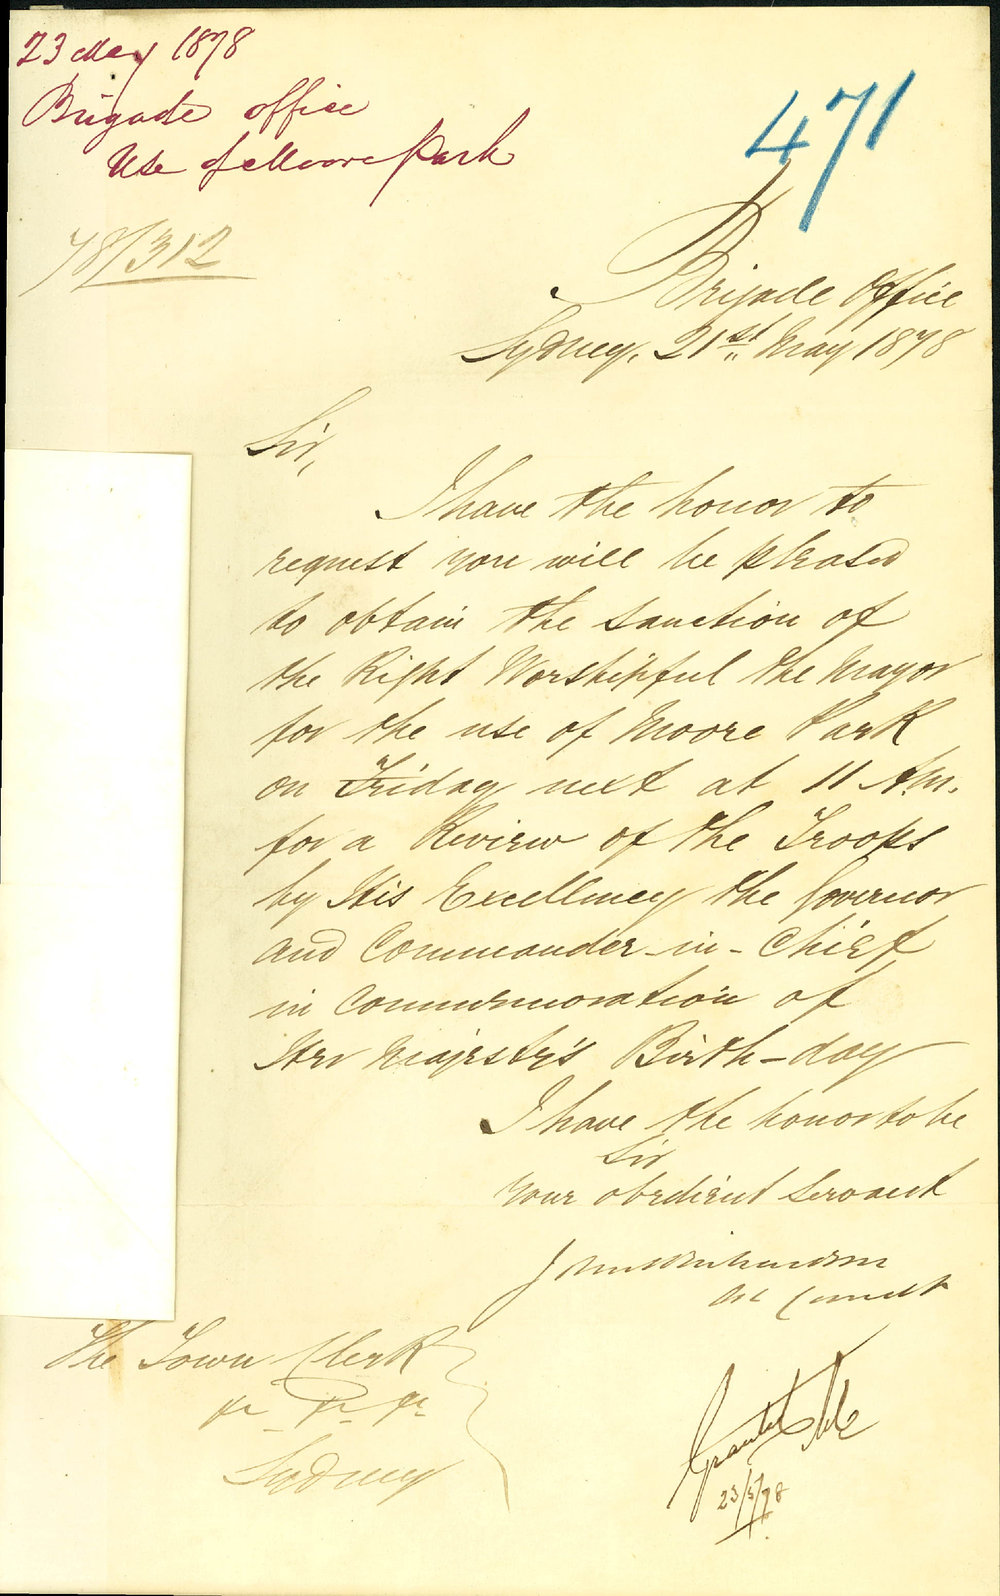 23 May 1878
Brigade office
Use of Moore Park
78/312
471
Brigade Office
Sydney, 21st May 1878
Sir,
I have the honor to
request you will be pleased
to obtain the sanction of
the Right Worshipful the Mayor
for the use of Moore Park
on Friday next at 11 A.M.
for a Review of the Troops
by His Excellency the Governor
and Commander-in-Chief
in Commemoration of
Her Majesty's Birth-day
I have the honor to be
Sir
Your obedient Servant
The Town Clerk
&c &c &c
Sydney
Granted
23/5/78